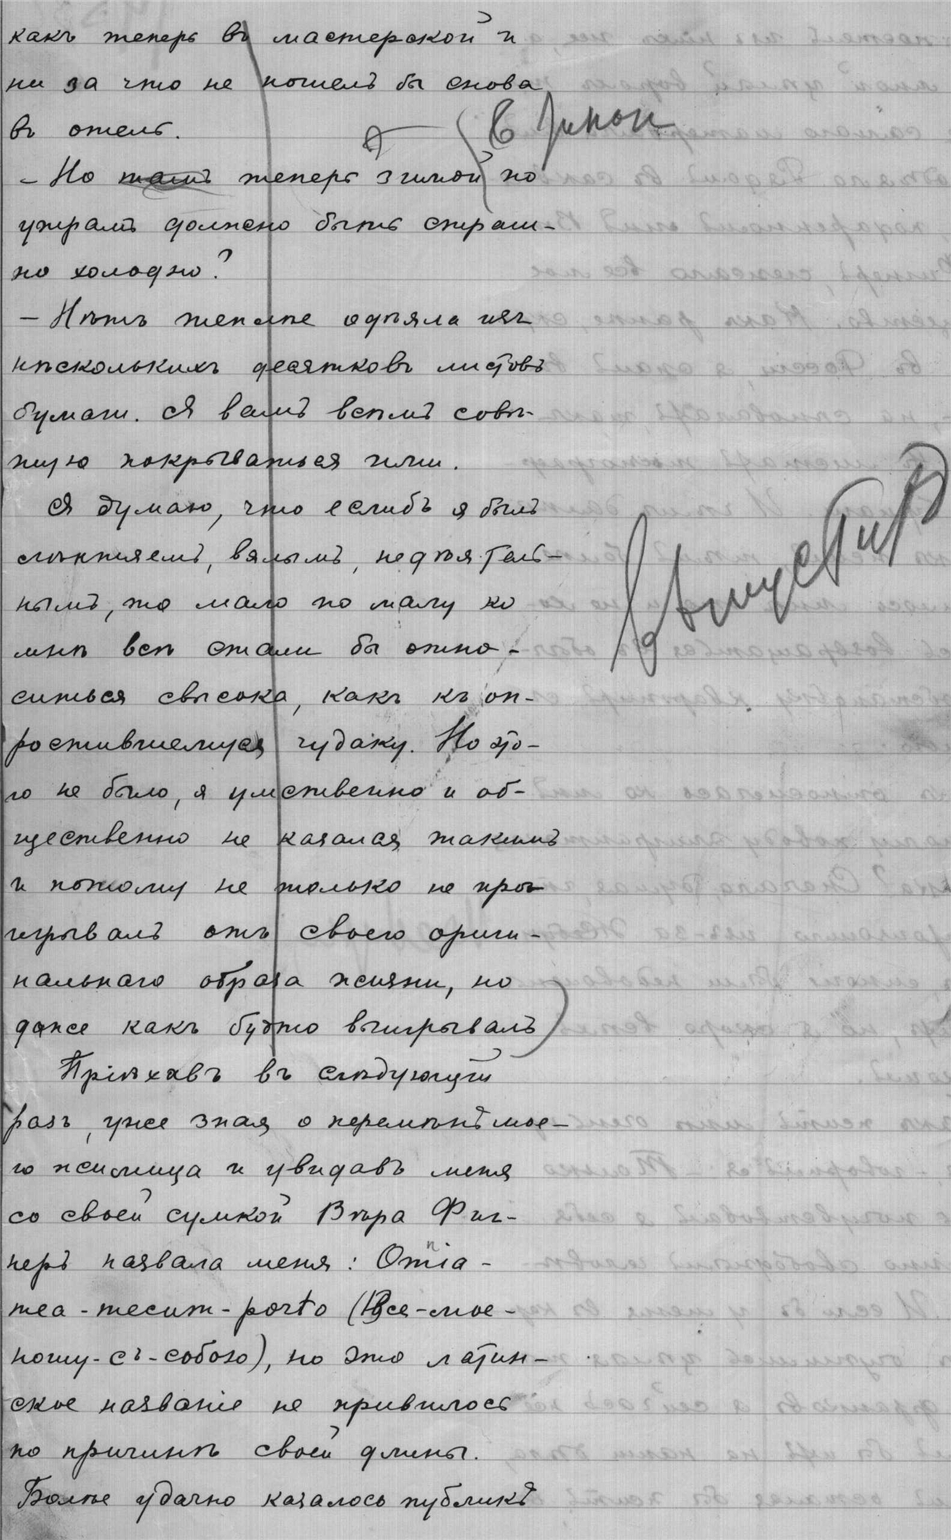 какъ теперь въ мастерской и
ни за что не пошелъ бы снова
въ отель.
— Но тамъ теперь зимой по
утрамъ должно быть страш-
но холодно?
— Нѣтъ теплѣе одѣяла изъ
нѣсколькихъ десятковъ листовъ
бумаги. Я вамъ всѣмъ совѣ-
тую покрываться ими.
Я думаю, что еслибъ я былъ
слюнтяемъ, вялымъ, недѣятель-
нымъ, то мало по малу ко
мнѣ всѣ стали бы отно-
ситься свысока, какъ къ оп-
ростившемуся чудаку. Но это-
го не было, я умственно и об-
щественно не казался такимъ
и потому не только не прои-
грывалъ отъ своего ориги-
нальнаго образа жизни, но
даже какъ будто выигрывалъ
Пріѣхавъ въ слѣдующій
разъ, уже зная о перемѣнѣ мое-
го жилища и увидавъ меня
со своей сумкой Вѣра Фиг-
неръ назвала меня: Omnia-
mea-mecum-porto (Все-мое-
ношу-съ-собою), но это латин-
ское названіе не привилось
по причинѣ своей длины.
Болѣе удачно казалось публикѣ
выпустить